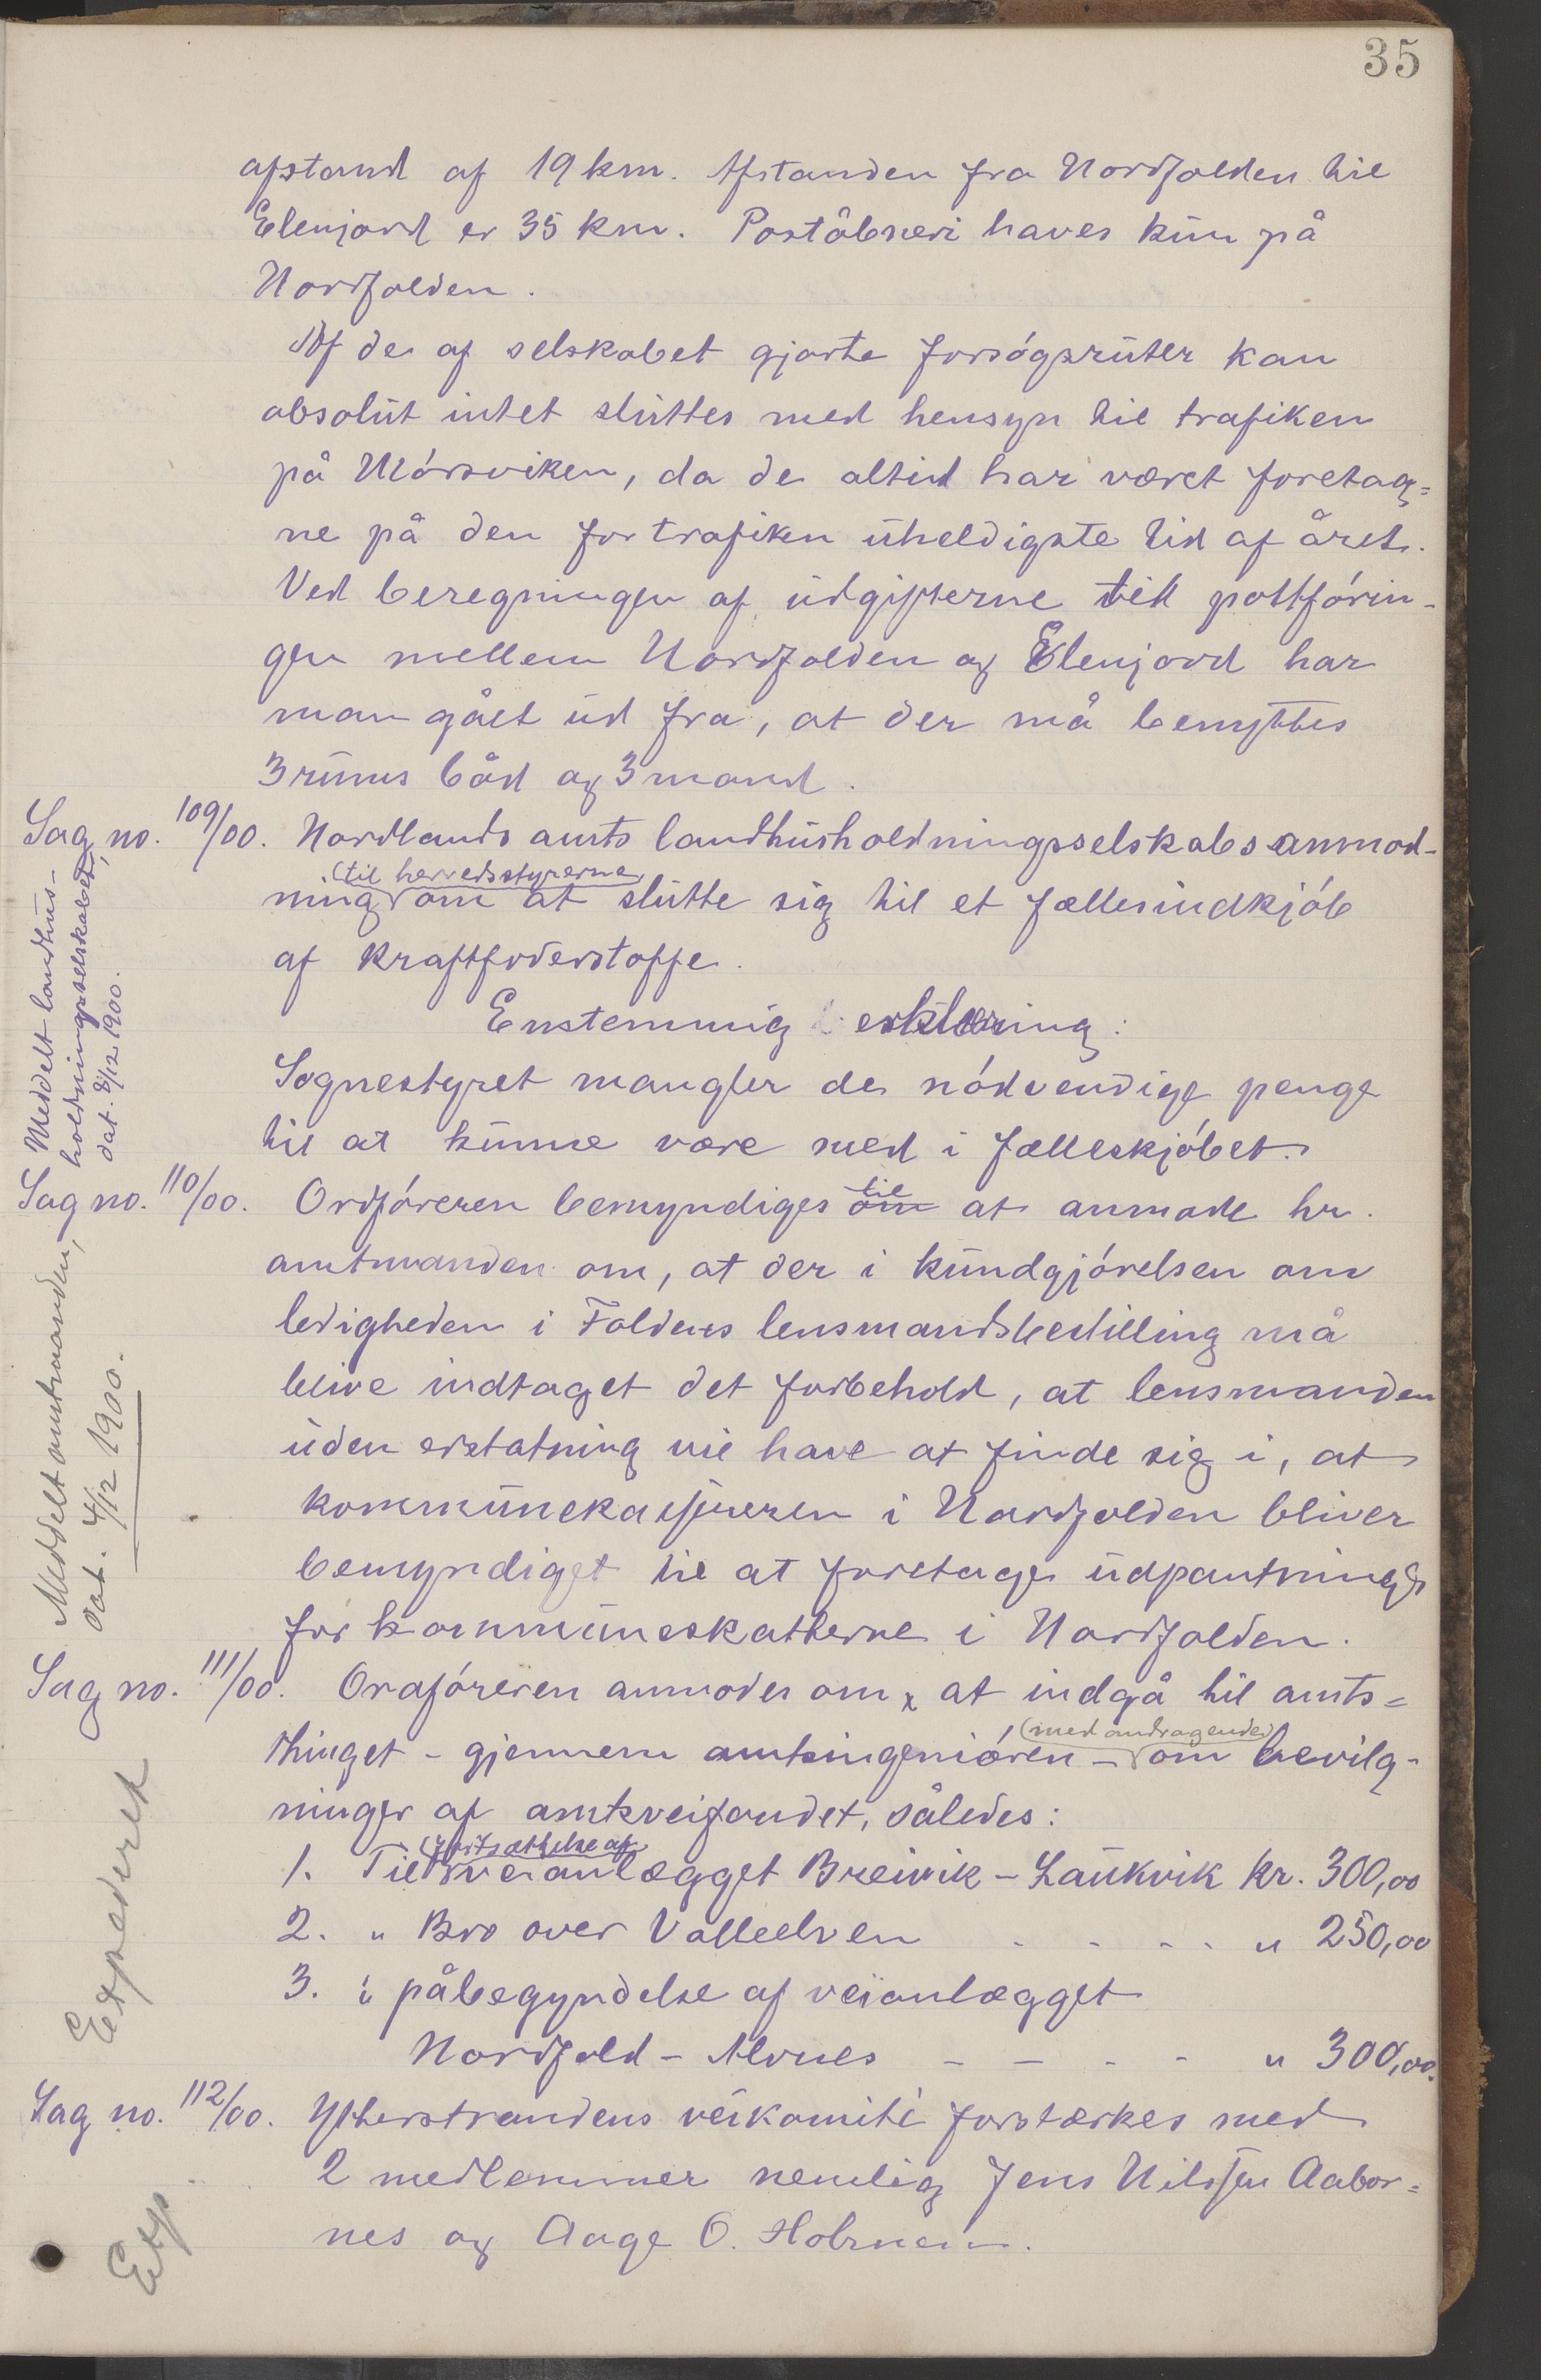 35
afstand af 19 km. Afstanden fra Nordfolden til
Elenjord er 35 km. Poståbneri haves kun på
Nordfolden.
Af de af selskabet gjorte forsógsruter kan
absolut intet sluttes med hensyn til trafiken
på Mórsviken, da de altid har været foretag=
ne på den for trafiken uheldigste tid af året.
Ved beregningen af udgifterne til postfórin-
gen mellem Nordfolden og Elenjord har
man gået ud fra, at der må benyttes
3 rums båd og 3 mand.
Sag no. 109/00. Nordlands amts landhusholdningsselskabs anmod-
(til herredsstyrerne)
ning om at slutte sig til et fællesindkjób
af kraftfoderstoffe.
Enstemmig erklæring:
Sognestyret mangler de nódvendige penge
til at kunne være med i fælleskjóbet.
Meddelt landhus-
holdningsselskabet,
dat. 8/12 1900.
Sag no. 110/00. Ordfóreren bemyndiges om til at anmode hr.
amtmanden om, at der i kundgjórelsen om
ledigheden i Foldens lensmandsbestilling må
blive indtaget det forbehold, at lensmanden
uden erstatning vil have at finde sig i, at
kommunekassereren i Nordfolden bliver
bemyndiget til at foretage udpantninger
for kommuneskatterne i Nordfolden.
Meddelt amtmanden,
dat. 4/12 1900.
Sag no. 111/00. Ordfóreren anmodes om at indgå til amts=
(med andragende)
thinget - gjennem amtsingenióren - om bevilg-
ninger af amtsveifondet, således:
(fortsættelse af)
1. Til veianlægget Breivik - Laukvik kr. 300,00
2. " Bro over Valleelven - - - - " 250,00
3. " påbegyndelse af veianlægget
Nordfold - Alvnes - - - - " 300,00.
Expederet
Sag no. 112/00. Ytterstrandens veikomité forstærkes med
2 medlemmer nemlig Jens Nilssen Aabor=
nes og Aage O. Holmen.
Exp